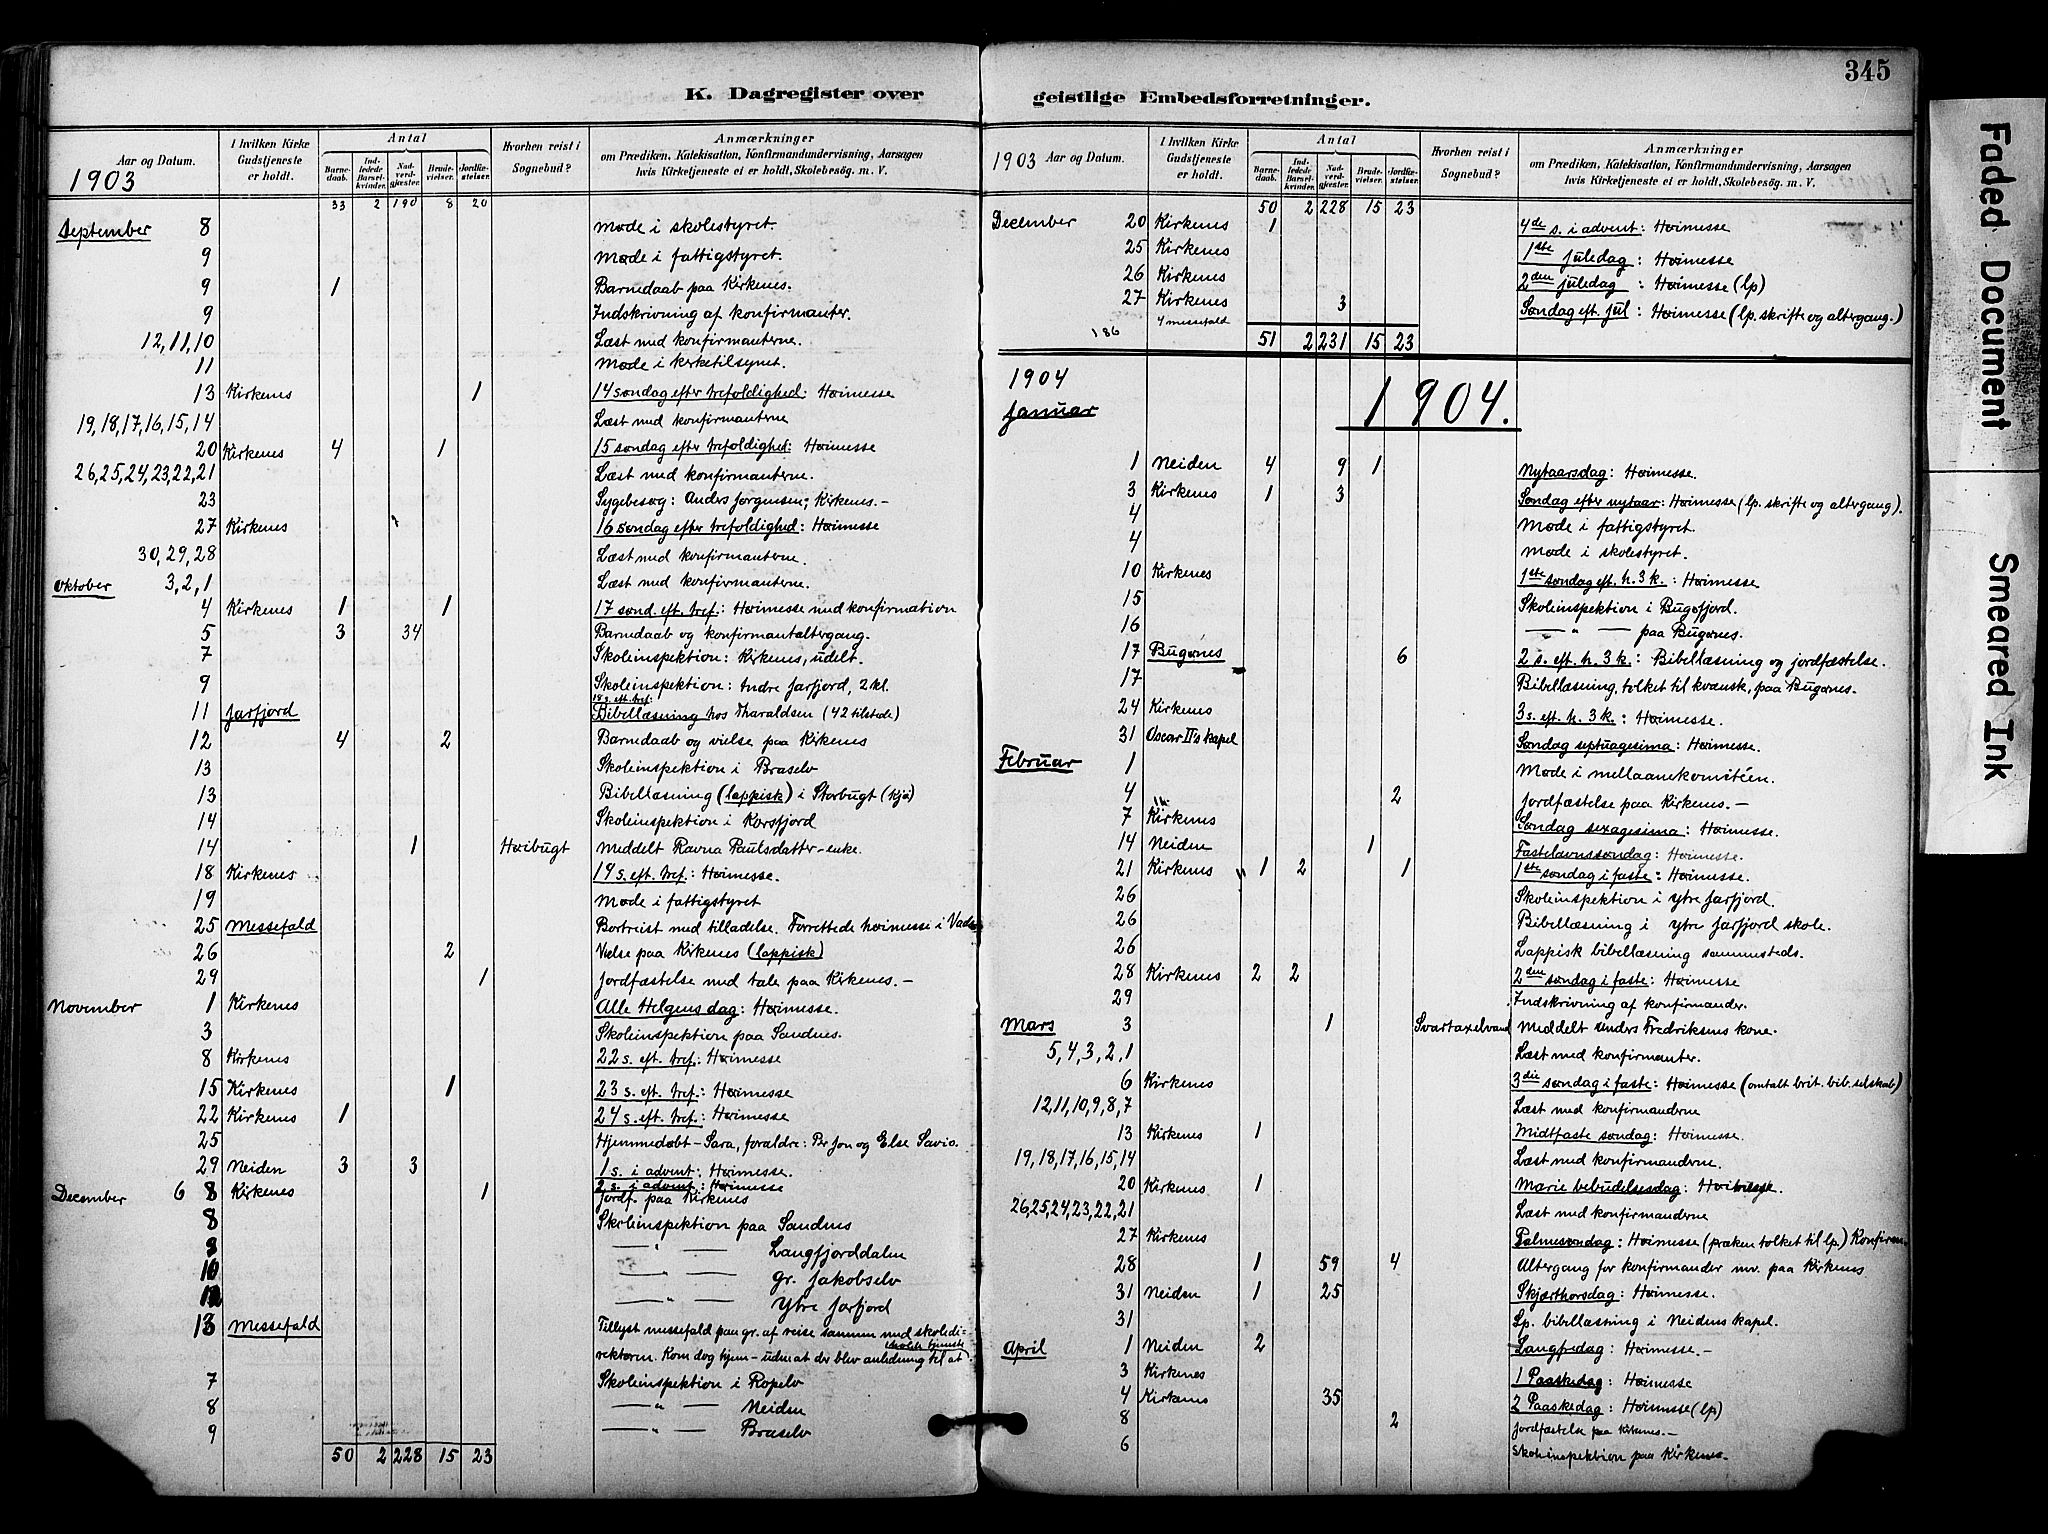 K. Dagregister over
Aar og Datum.
I hvilken Kirke Gudstjeneste er holdt.
Antal
Barnedaab.
Indledede Barselkvinder.
Nadverdgjester.
Brudevielser.
Jordfæstelser.
Hvorhen reist i Sognebud?
Anmærkninger
om Prædiken, Katekisation, Konfirmandundervisning, Aarsagen
hvis Kirketjeneste ei er holdt, Skolebesøg. m. V.
1903
33 2 190 8 20
September 8 Møde i skolestyret.
9 Møde i fattigstyret.
9 1 Barnedaab paa Kirkenes.
9 Indskrivning af konfirmanter.
12, 11, 10 Læst med konfirmanterne.
11 Møde i kirketilsynet.
13 Kirkenes 1 14 søndag efter trefoldighed: Høimesse
19, 18, 17, 16, 15, 14 Læst med konfirmanterne
20 Kirkenes 4 1 15 søndag efter trefoldighed: Høimesse
26, 25, 24, 23, 22, 21 Læst med konfirmanterne.
23 Sygebesøg: Anders Jørgensen, Kirkenes.-
27 Kirkenes 16 søndag efter trefoldighed: Høimesse
30, 29, 28 Læst med konfirmanterne.
Oktober 3, 2, 1 Læst med konfirmanterne.
4 Kirkenes 1 1 17 sønd. eft. tref.: Høimesse med konfirmation
5 3 34 Barnedaab og konfirmantaltergang.
7 Skoleinspektion: Kirkenes, udelt.
9 Skoleinspektion: Indre Jarfjord, 2 kl.
18 s. eft. tref.
11 Jarfjord Bibellæsning hos Tharaldsen (42 tilstede)
12 4 2 Barnedaab og vielse paa Kirkenes
13 Skoleinspektion i Braselv
13 Bibellæsning (lappisk) i Storbugt (Kjø)
14 Skoleinspektion i Korsfjord
14 1 Høibugt Meddelt Ravna Paulsdatter - enke.
18 Kirkenes 19 s. eft. tref.: Høimesse.
19 Møde i fattigstyret
25 Messefald Bortreist med tilladelse. Forrettede høimesse i Vadsø
26 2 Vielse paa Kirkenes (lappisk)
29 1 Jordfæstelse med tale paa Kirkenes.-
November 1 Kirkenes Alle Helgens dag: Høimesse.
3 Skoleinspektion paa Sandnes.
8 Kirkenes 22 s. eft. tref.: Høimesse
15 Kirkenes 1 23 s. eft. tref.: Høimesse
22 Kirkenes 1 24 s. eft. tref.: Høimesse
25 Hjemmedøbt - Sara, forældre: Per Jon og Else Savio.
29 Neiden 3 3 1 s. i advent: Høimesse.
December 6 8 Kirkenes 1 2 s. i advent: Høimesse
Jordf. paa Kirkenes
8 Skoleinspektion paa Sandnes
8 — " — Langfjorddalen
10 — " — gr. Jakobselv
12 — " — Ytre Jarfjord
13 Messefald Tillyst messefald paa gr. af reise sammen med skoledi-
rektøren. Kom dog hjem - uden at der blev anledning til at holde tjeneste
7 Skoleinspektion i Ropelv
8 — " — Neiden
9 — " — Braselv
50 2 228 15 23
geistlige Embedsforretninger.
345
1903 Aar og Datum.
I hvilken Kirke Gudstjeneste er holdt.
Antal
Barnedaab.
Indledede Barselkvinder.
Nadverdgjester.
Brudevielser.
Jordfæstelser.
Hvorhen reist i Sognebud?
Anmærkninger
om Prædiken, Katekisation, Konfirmandundervisning, Aarsagen
hvis Kirketjeneste ei er holdt, Skolebesøg. m. V.
50 2 228 15 23
December 20 Kirkenes 1 4de s. i advent: Høimesse
25 Kirkenes 1ste juledag: Høimesse
26 Kirkenes 2den juledag: Høimesse (lp)
27 Kirkenes 3 Søndag eft. jul: Høimesse (lp. skrifte og altergang.)
4 messefald
186 51 2 231 15 23
1904
1904.
Januar
1 Neiden 4 9 1 Nytaarsdag: Høimesse.
3 Kirkenes 1 3 Søndag efter nytaar: Høimesse (lp. skrifte og altergang).
4 Møde i fattigstyret.
4 Møde i skolestyret.
10 Kirkenes 1ste søndag eft. h. 3 k.: Høimesse
15 Skoleinspektion i Bugøfjord.
16 — " — paa Bugønes.
17 Bugønes 6 2 s. eft. h. 3 k.: Bibellæsning og jordfæstelse.
17 Bibellæsning, tolket til kvænsk, paa Bugønes.
24 Kirkenes 3 s. eft. h. 3 k.: Høimesse.
31 Oscar II's kapel Søndag septuagesima: Høimesse.
Februar 1 Møde i mellaanekomitéen.
4 2 Jordfæstelse paa Kirkenes.-
7 Kirkenes Søndag sexagesima: Høimesse.
14 Neiden 1 Fastelavnssøndag: Høimesse.
21 Kirkenes 1 2 1 1ste søndag i faste: Høimesse.
26 Skoleinspektion i ytre Jarfjord.
26 Bibellæsning i ytre Jarfjord skole.
26 Lappisk bibellæsning sammesteds.
28 Kirkenes 2 2 2den søndag i faste: Høimesse
29 Indskrivning af konfirmander.
Mars 3 1 Svartaxelvand Meddelt Anders Fredriksens kone.
5, 4, 3, 2, 1 Læst med konfirmanter.
6 Kirkenes 3die søndag i faste: Høimesse (omtalt brit. bib. selskab)
12, 11, 10, 9, 8, 7 Læst med konfirmanderne
13 Kirkenes 1 Midtfaste søndag: Høimesse.
19, 18, 17, 16, 15, 14 Læst med konfirmanderne.
20 Kirkenes 1 Marie bebudelsesdag: Høimesse.
26, 25, 24, 23, 22, 21 Læst med konfirmanderne
27 Kirkenes Palmesøndag: Høimesse (præken tolket til lp.) Konfirm.
28 1 59 4 Altergang for konfirmander mv. paa Kirkenes
31 Neiden 1 25 Skjærthorsdag: Høimesse.
31 Lp. bibellæsning i Neidens kapel.
April 1 Neiden 2 Langfredag: Høimesse.-
3 Kirkenes 1 Paaskedag: Høimesse
4 Kirkenes 35 2 Paaskedag: Høimesse (lp)
8 2 Jordfæstelse paa Kirkenes.-
6 Skoleinspektion paa Kirkenes.
Faded Document
Smeared Ink